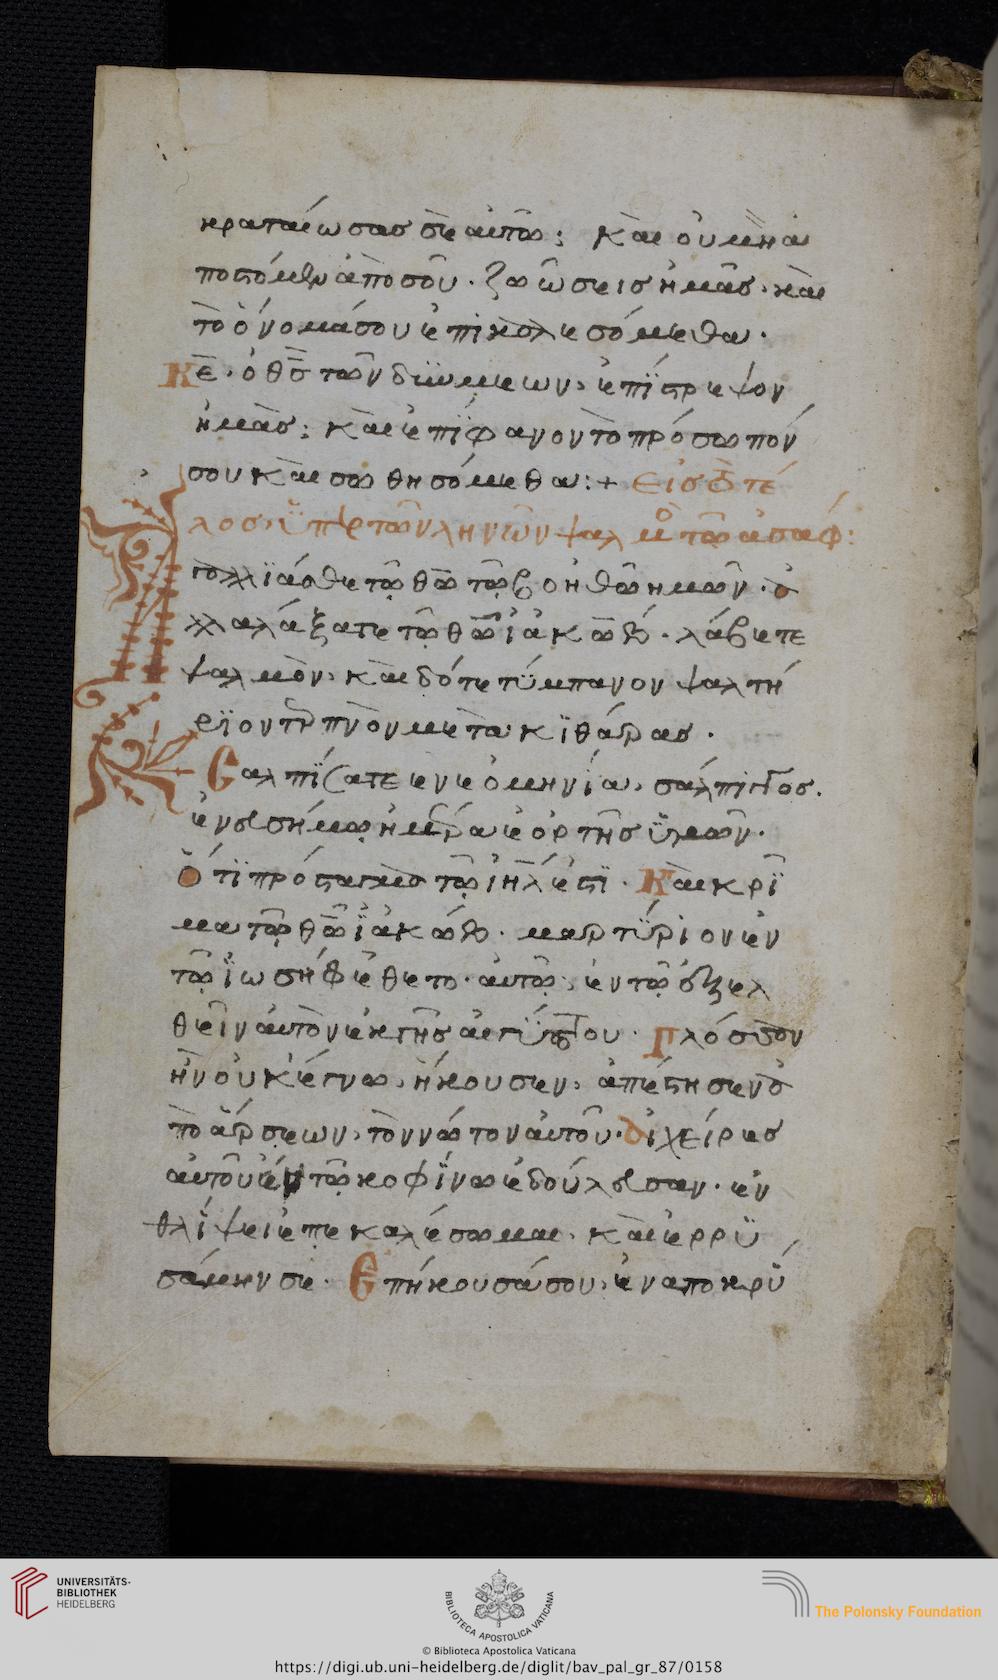 κραταίωσας σὲ αὐτῶ: Καὶ οὐ μὴ ἀ
ποστόμεν ἀπο σοῦ. ζωώσεις ἡμᾶς. καὶ
τὸ ὀνομά σου ἐπικαλεσόμεθα.
Κε̅. ὁ θς̅ τῶν δϋνάμεων, ἐπΐστρεψον
ἡμᾶς: καὶ ἐπΐφανον τὸ πρόσωπόν
σου καὶ σωθησόμεθα:+ εἰς τὸ τέ
λος. ϋπὲρ τῶν ληνῶν ψαλμὸ τῶ ἀσαφ:
Αγαλλϊάσθε τῶ θῶ τῶ βοηθῶ ημῶν. ἀ
λλαλάξατε τῶ θῶ ἰακώβ. λάβετε
ψαλμὸν, καὶ δότε τϋμπανον ψαλτή
ρϊον τερπνὸν μετὰ κϊθάρας.
Σαλπϊσατε ἐν νεομηνία, σάλπιγγος.
ἐν εὐσήμω ἡμέρα ἑορτῆς ϋμῶν.
Ὅτϊ πρόσταγμα τῶ ιη̅λ ἐστϊ. Καὶ κρϊ
μα τῶ θῶ ϊακώβ. μαρτϋριον ἐν
τῶ ϊωσήφ ἔθετο αὐτῶ, ἐν τῶ ἐξελ
θεῖν αὐτὸν ἐκ γῆς αἰγϋπτου. Γλόσσαν
ἣν οὐκ ἔγνω, ἤκουσεν, ἀπέστησεν ἀ
πὸ ἄρσεων, τὸν νώτον αὐτοῦ. αἱ χείρες
αὐτοῦ ἐν τῶ κοφΐνω ἐδούλευσαν. ἐν
θλίψει ἐπεκαλέσωμαι. καὶ ἐρρϋ
σάμην σε. Επήκουσά σου, ἐν αποκρϋ
UNIVERSITÄTS-
BIBLIOTHEK
HEIDELBERG
BIBLIOTECA APOSTOLICA VATICANA
The Polonsky Foundation
© Biblioteca Apostolica Vaticana
https://digi.ub.uni-heidelberg.de/diglit/bav_pal_gr_87/0158